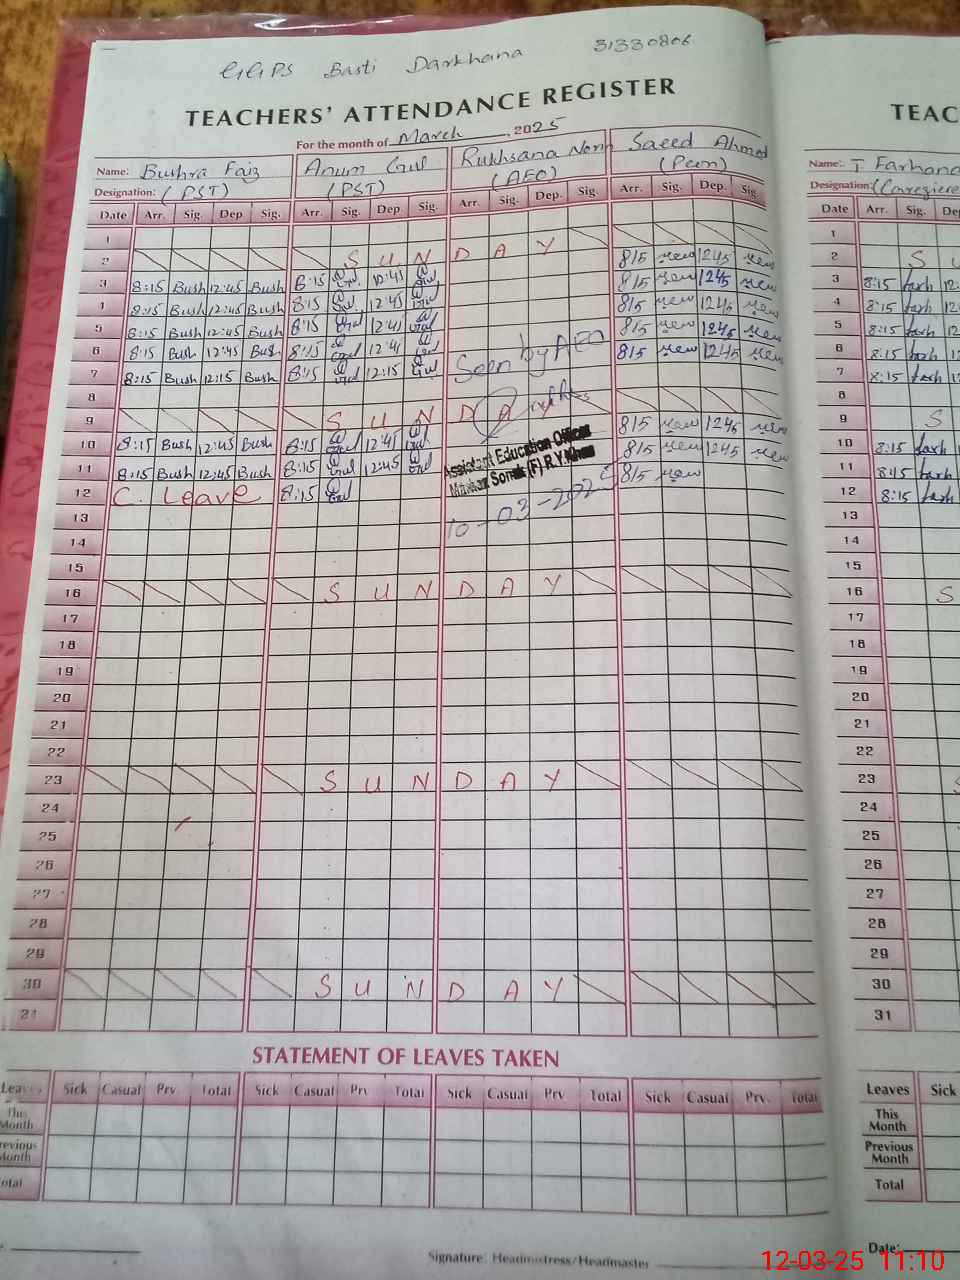 GGPS Basti Darkhana 31330806
TEACHERS' ATTENDANCE REGISTER
For the month of March, 2025
Name: Bushra Faiz Anum Gul Rukhsana Saeed Ahmad
Designation: (PST) (PST) (AEO) (Peon)
Date Arr. Sig. Dep Sig. Arr. Sig. Dep. Sig. Arr. Sig. Dep. Sig. Arr. Sig. Dep. Sig.
1
2 S U N D A Y 815 1245
3 8:15 Bush 12:45 Bush 8:15 Gul 12:45 Gul 815 1245
4 8:15 Bush 12:45 Bush 8:15 Gul 12:45 Gul 815 1245
5 8:15 Bush 12:45 Bush 8:15 Gul 12:45 Gul 815 1245
6 8:15 Bush 12:45 Bush 8:15 Gul 12:4 Gul 815 1245
7 8:15 Bush 12:15 Bush 8:15 Gul 12:15 Gul Seen by AEO
8
9 S U N D A Y 815 1245
10 8:15 Bush 12:45 Bush 8:15 Gul 12:45 Gul 815 1245
11 8:15 Bush 12:45 Bush 8:15 Gul 12:45 Gul 815
Assistant Education Officer
Markaz (F) R.Y.Khan
10-03-2025
12 C. Leave 8:15 Gul
13
14
15
16 S U N D A Y
17
18
19
20
21
22
23 S U N D A Y
24
25
26
27
28
29
30 S U N D A Y
31
STATEMENT OF LEAVES TAKEN
Leaves Sick Casual Prv Total Sick Casual Prv Total Sick Casual Prv Total Sick Casual Prv. Total
This Month
Previous Month
Total
Signature: Headmistress/Headmaster
TEAC
Name: T Farhana
Designation: (Caregiver
Date Arr. Sig. De
1
2 S U
3 8:15 farh 12:
4 8:15 farh 12
5 8:15 farh 12
6 8:15 farh 12
7 8:15 farh 12
8
9 S
10 8:15 farh 12
11 8:15 farh 12
12 8:15 farh
13
14
15
16 S
17
18
19
20
21
22
23 S
24
25
26
27
28
29
30
31
Leaves Sick
This Month
Previous Month
Total
Date:
12-03-25 11:10